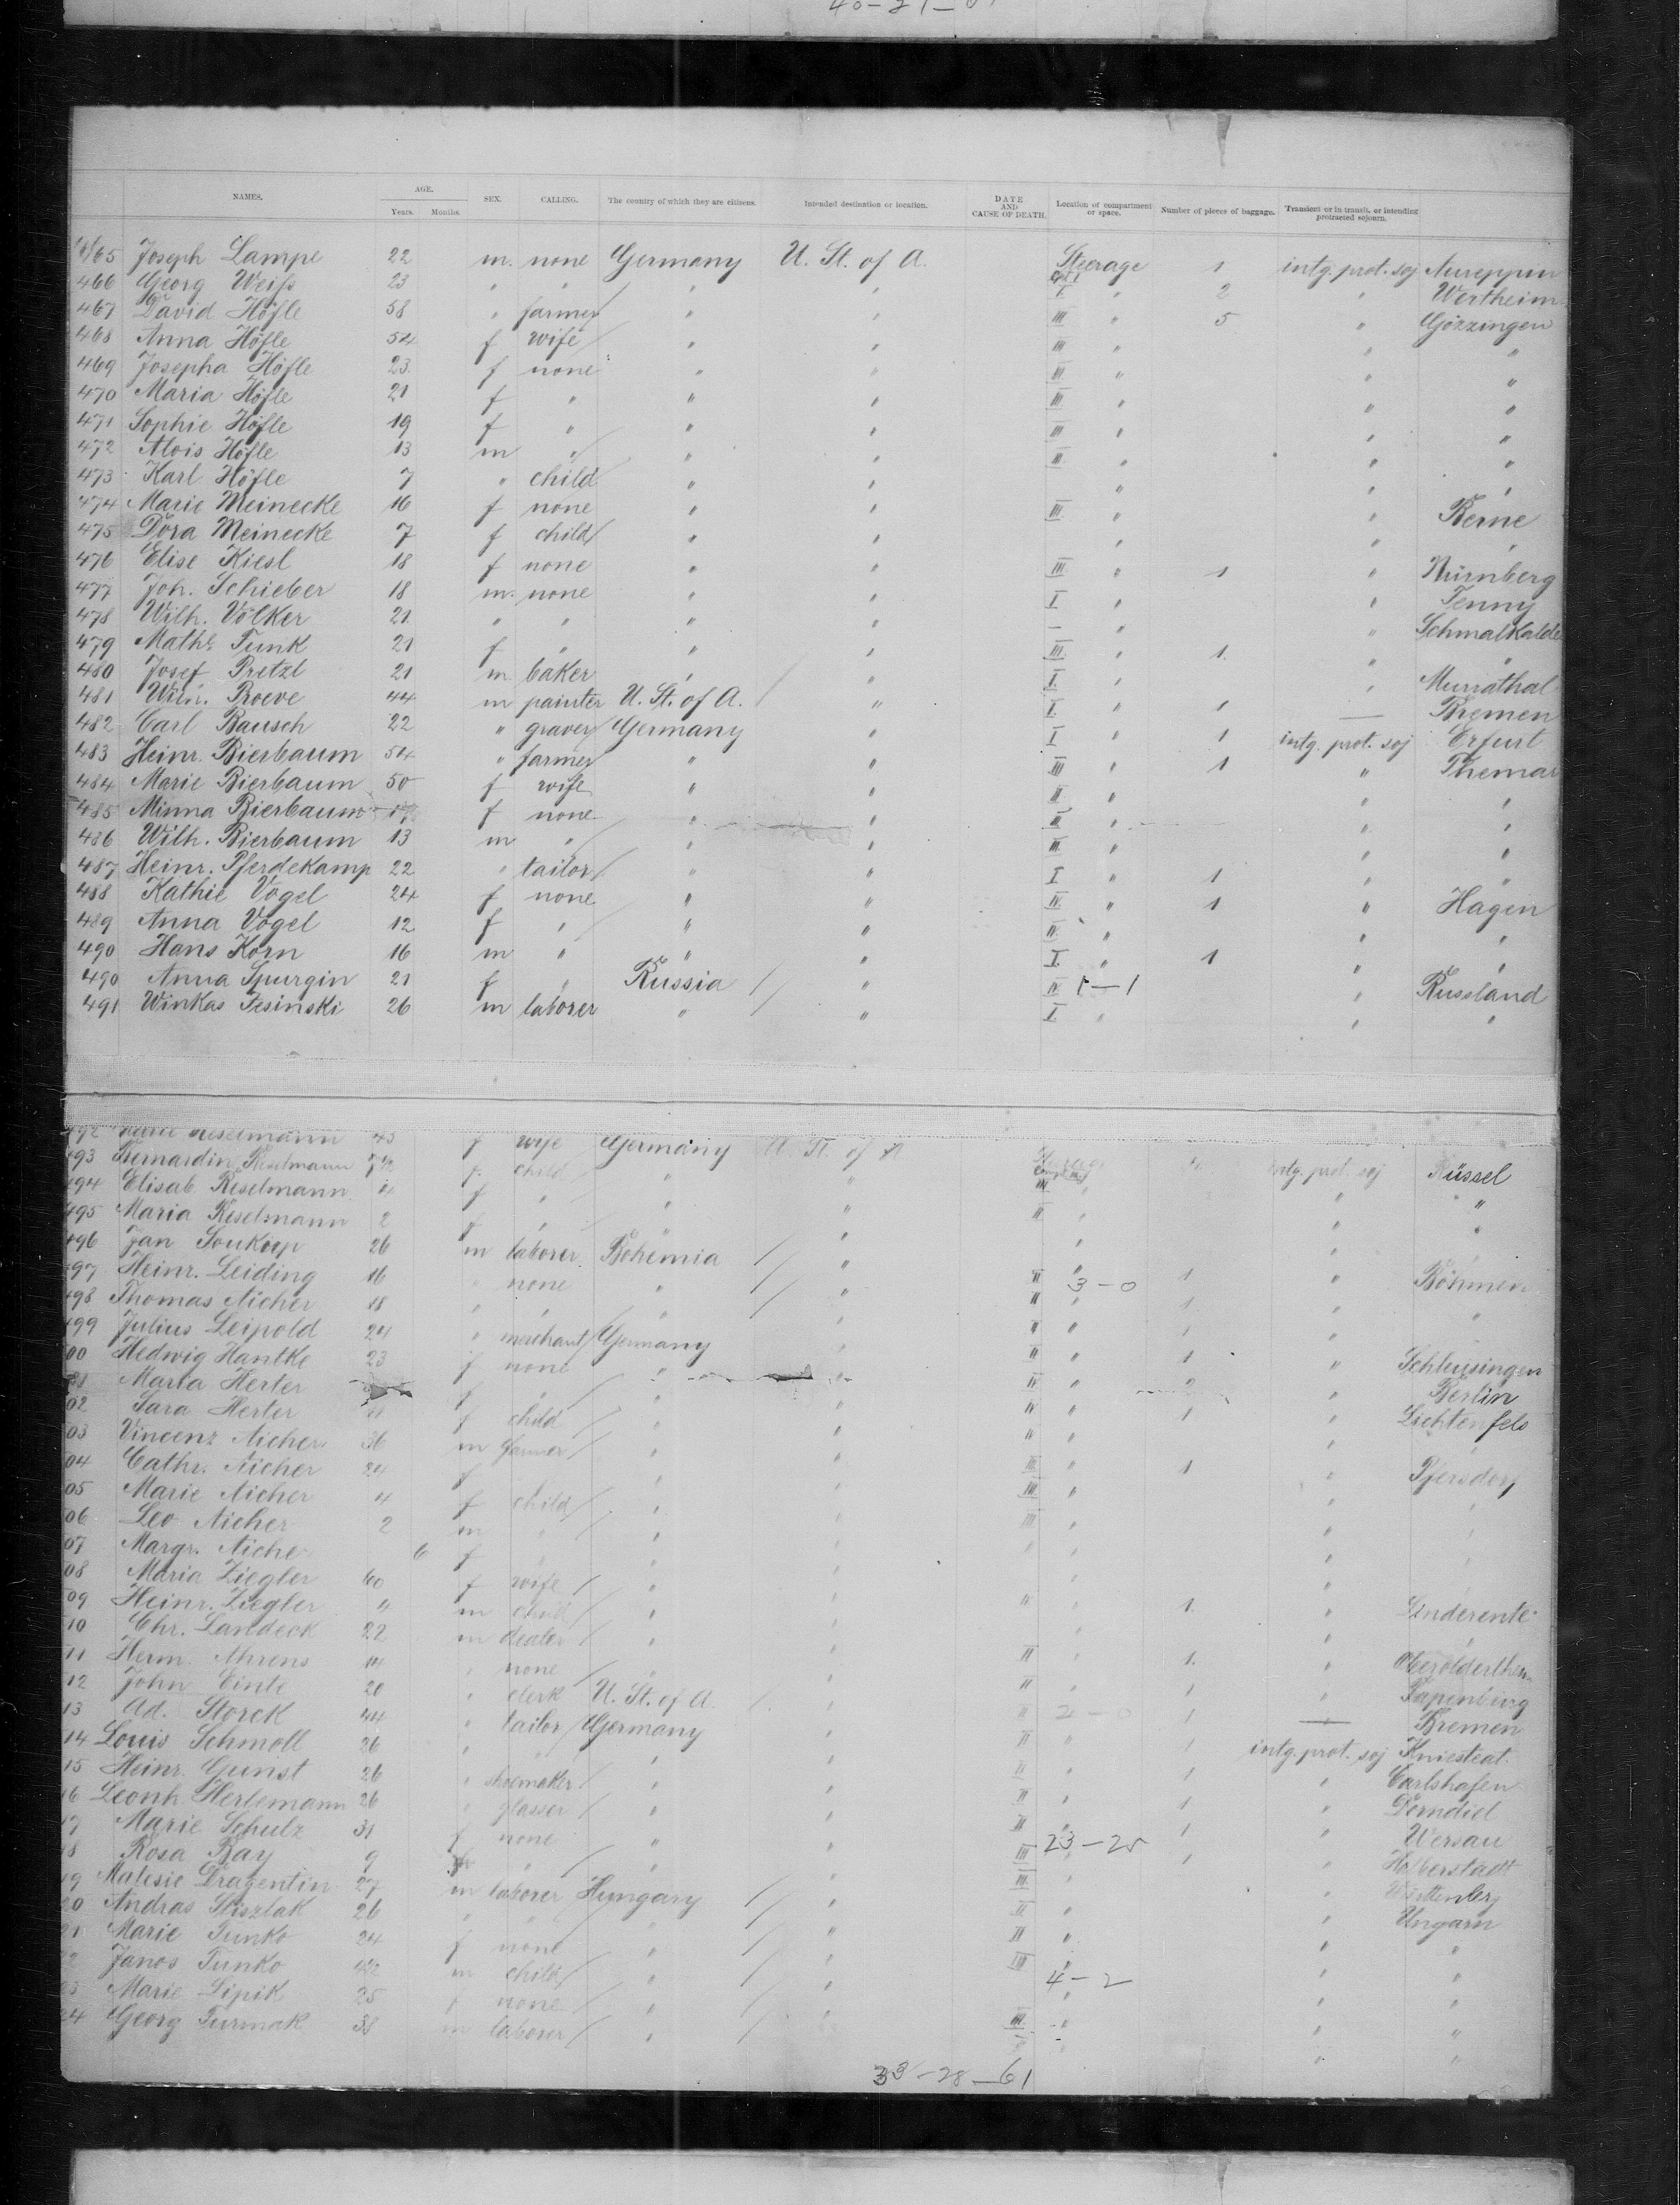 40-21-61
NAMES. AGE. Years. Months. SEX. CALLING. The country of which they are citizens. Intended destination or location. DATE AND CAUSE OF DEATH. Location of compartment or space. Number of pieces of baggage. Transient or in transit, or intending protracted sojourn.
465 Joseph Lampe 22 m. none Germany U. St. of A. Steerage 1 intg. prot. soj
466 Georg Weiß 23 " " " " I. " 2 " Wertheim
467 David Höfle 58 " farmer " " III " 5 " Götzingen
468 Anna Höfle 54 f wife " " III " " "
469 Josepha Höfle 23 f none " " III. " " "
470 Maria Höfle 21 f " " " III " " "
471 Sophie Höfle 19 f " " " III " " "
472 Alois Höfle 13 m " " " III. " " "
473 Karl Höfle 7 " child " " " " "
474 Marie Meinecke 16 f none " " III " " Berne
475 Dora Meinecke 7 f child " " " " "
476 Elise Kiesl 18 f none " " III " 1 " Nürnberg
477 Joh. Schieber 18 m. none " " I " " Jenny
478 Wilh. Völker 21 " " " " — " " Schmalkalde
479 Mathe Funk 21 f " " " III. " 1. " "
480 Josef Pretzl 21 m baker " " I. " "
481 Wilh. Boeve 44 m painter U. St. of A. " I. " 1 — Bremen
482 Carl Bausch 22 " graver Germany " I " 1 intg. prot. soj Erfurt
483 Heinr. Bierbaum 54 " farmer " " III " 1 " Themar
484 Marie Bierbaum 50 f wife " " III " " "
485 Minna Bierbaum 17 f none " " III " " "
486 Wilh. Bierbaum 13 m " " " III. " " "
487 Heinr. Pferdekamp 22 " tailor " " I " 1 " "
488 Kathie Vogel 24 f none " " IV. " 1 " Hagen
489 Anna Vogel 12 f " " " IV. " " "
490 Hans Korn 16 m " " " I. " 1 " "
490 Anna Spurgin 21 f " Russia " IV 1—1 " Russland
491 Winkas Jesinski 26 m laborer " " I. " " "
492 Marie Reselmann 43 f wife Germany U. St. of A
493 Bernardin Reselmann f. child " " intg. prot. soj Rüssel
494 Elisab. Reselmann 4 f " " " " "
495 Maria Reselmann 2 f " " " " "
496 Jan Soukoop 26 m laborer Bohemia " "
497 Heinr. Leiding 16 " none " " II 3—0 1 " Böhmen
498 Thomas Aicher 18 " " " " II " 1 " "
499 Julius Leipold 24 " merchant Germany " II " 1 "
00 Hedwig Hantke 23 f none " " II " 1 " Schleusingen
Maria Herter f " " " IV " 2 " Berlin
02 Sara Herter f child " " IV " 1 " Lichtenfels
03 Vincenz Aicher 36 m farmer " " "
04 Cathr. Aicher 24 f " " III " 1 " Pfersdorf
05 Marie Aicher 4 f child " " III " "
06 Leo Aicher 2 m " " " III " "
07 Margr. Aicher 6 f " " "
08 Maria Ziegler 60 f wife " "
09 Heinr. Ziegler 4 m child " " " 1.
10 Chr. Landeck 22 m dealer " "
11 Herm. Ahrens 14 " none " " II " 1. "
12 John Einte 20 " clerk U. St. of A. " II " 1 "
13 Ad. Storck 44 " tailor Germany " II 2—0 1 — Bremen
14 Louis Schmoll 26 " " " " II " 1 intg. prot. soj
15 Heinr. Gunst 26 " shoemaker " " II " 1 " Carlshafen
16 Leonh. Herlemann 26 " glasser " " II " 1 " Dorndiel
17 Marie Schulz 31 f none " " II 23—25 1 " Wersau
18 Rosa Bay 9 " " " III " 1 " Halberstadt
19 Malesic Dragentin 27 m laborer Hungary " III. " " Württenberg
20 Andras Sliszlak 26 " " " " II " " Ungarn
21 Marie Tunko 24 f none " " II " " "
22 Janos Tunko m child " " III 4—2 " "
23 Marie Lipik 25 f none " " " " "
24 Georg Turmak 38 m laborer " III. " " "
33—28—61